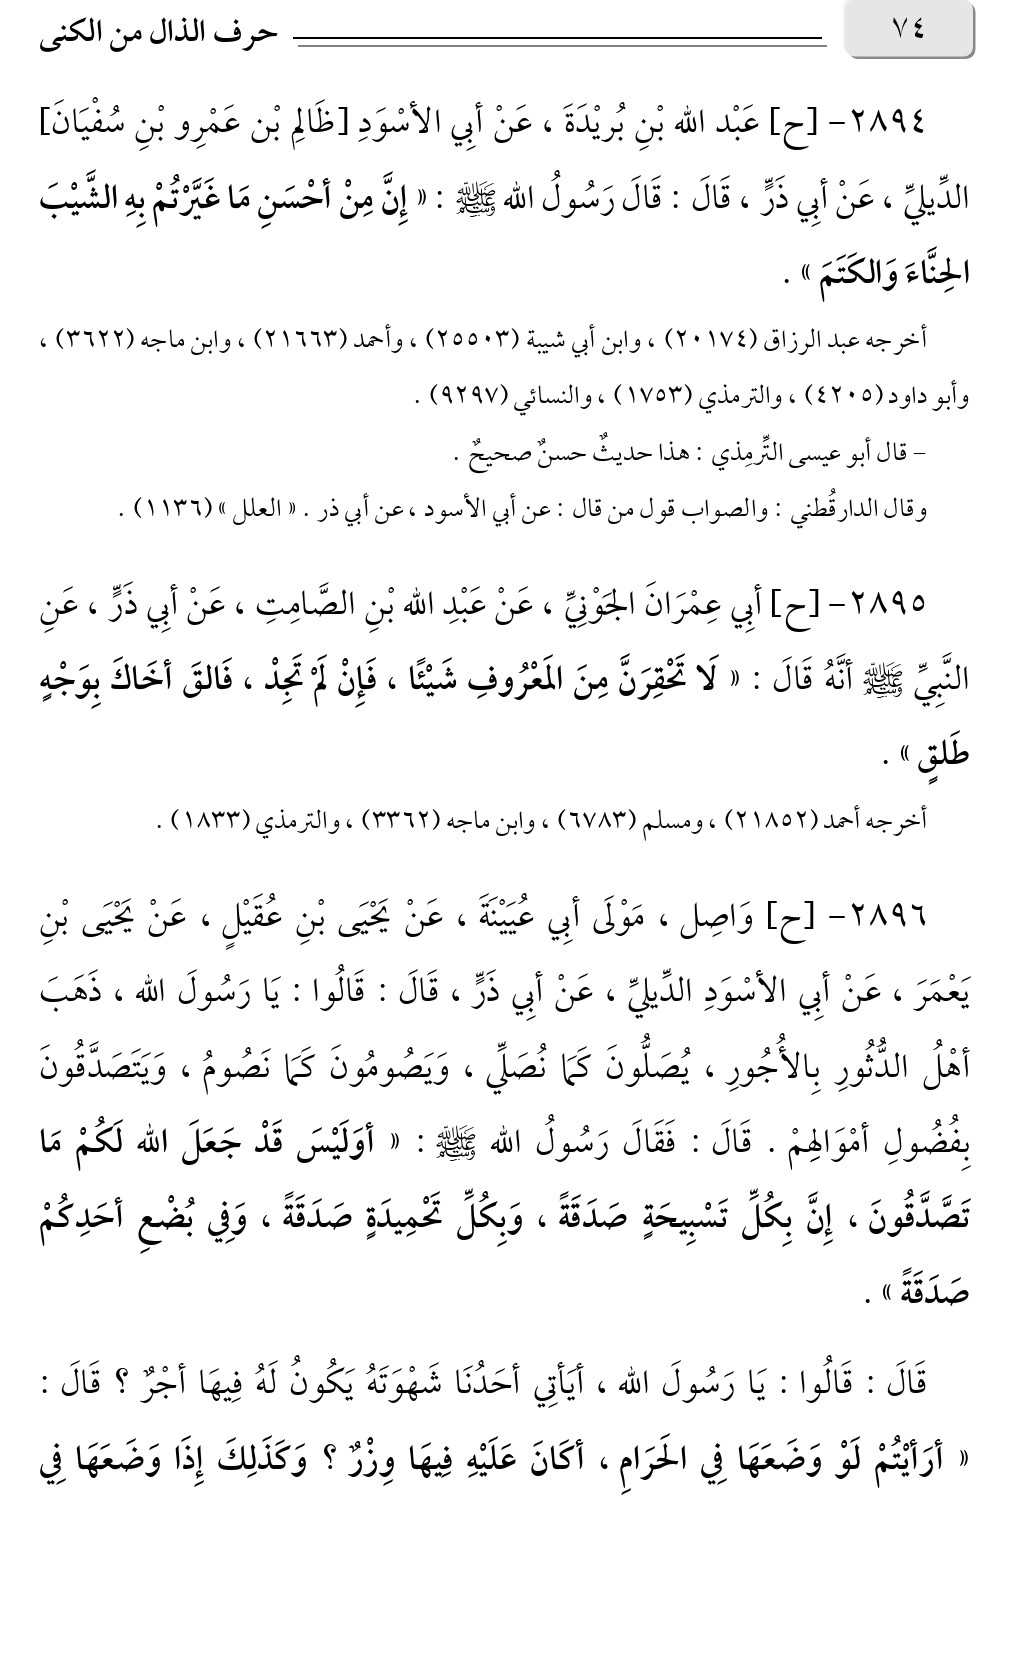 ٧٤
حرف الذال من الكنى
٢٨٩٤- [ح] عَبْد الله بْنِ بُرَيْدَةَ ، عَنْ أبِي الأسْوَدِ [ظَالِمِ بْن عَمْرِو بْنِ سُفْيَانَ]
الدِّيليِّ ، عَنْ أبِي ذَرٍّ ، قَالَ : قَالَ رَسُولُ الله ﷺ : « إِنَّ مِنْ أحْسَنِ مَا غَيَّرْتُمْ بِهِ الشَّيْبَ
الحِنَّاءَ وَالكَتَمَ » .
أخرجه عبد الرزاق (٢٠١٧٤) ، وابن أبي شيبة (٢٥٥٠٣) ، وأحمد (٢١٦٦٣) ، وابن ماجه (٣٦٢٢) ،
وأبو داود (٤٢٠٥) ، والترمذي (١٧٥٣) ، والنسائي (٩٢٩٧) .
– قال أبو عيسى التِّرمِذي : هذا حديثٌ حسنٌ صحيحٌ .
وقال الدارقُطني : والصواب قول من قال : عن أبي الأسود ، عن أبي ذر . « العلل » (١١٣٦) .
٢٨٩٥- [ح] أبِي عِمْرَانَ الجَوْنِيِّ ، عَنْ عَبْدِ الله بْنِ الصَّامِتِ ، عَنْ أبِي ذَرٍّ ، عَنِ
النَّبِيِّ ﷺ أنَّهُ قَالَ : « لَا تَحْقِرَنَّ مِنَ المَعْرُوفِ شَيْئًا ، فَإِنْ لَمْ تَجِدْ ، فَالقَ أخَاكَ بِوَجْهٍ
طَلقٍ » .
أخرجه أحمد (٢١٨٥٢) ، ومسلم (٦٧٨٣) ، وابن ماجه (٣٣٦٢) ، والترمذي (١٨٣٣) .
٢٨٩٦- [ح] وَاصِل ، مَوْلَى أبِي عُيَيْنَةَ ، عَنْ يَحْيَى بْنِ عُقَيْلٍ ، عَنْ يَحْيَى بْنِ
يَعْمَرَ ، عَنْ أبِي الأسْوَدِ الدِّيليِّ ، عَنْ أبِي ذَرٍّ ، قَالَ : قَالُوا : يَا رَسُولَ الله ، ذَهَبَ
أهْلُ الدُّثُورِ بِالأُجُورِ ، يُصَلُّونَ كَمَا نُصَلِّي ، وَيَصُومُونَ كَمَا نَصُومُ ، وَيَتَصَدَّقُونَ
بِفُضُولِ أمْوَالِهِمْ . قَالَ : فَقَالَ رَسُولُ الله ﷺ : « أوَلَيْسَ قَدْ جَعَلَ الله لَكُمْ مَا
تَصَّدَّقُونَ ، إِنَّ بِكُلِّ تَسْبِيحَةٍ صَدَقَةً ، وَبِكُلِّ تَحْمِيدَةٍ صَدَقَةً ، وَفِي بُضْعِ أحَدِكُمْ
صَدَقَةً » .
قَالَ : قَالُوا : يَا رَسُولَ الله ، أيَأتِي أحَدُنَا شَهْوَتَهُ يَكُونُ لَهُ فِيهَا أجْرٌ ؟ قَالَ :
« أرَأيْتُمْ لَوْ وَضَعَهَا فِي الحَرَامِ ، أكَانَ عَلَيْهِ فِيهَا وِزْرٌ ؟ وَكَذَلِكَ إِذَا وَضَعَهَا فِي